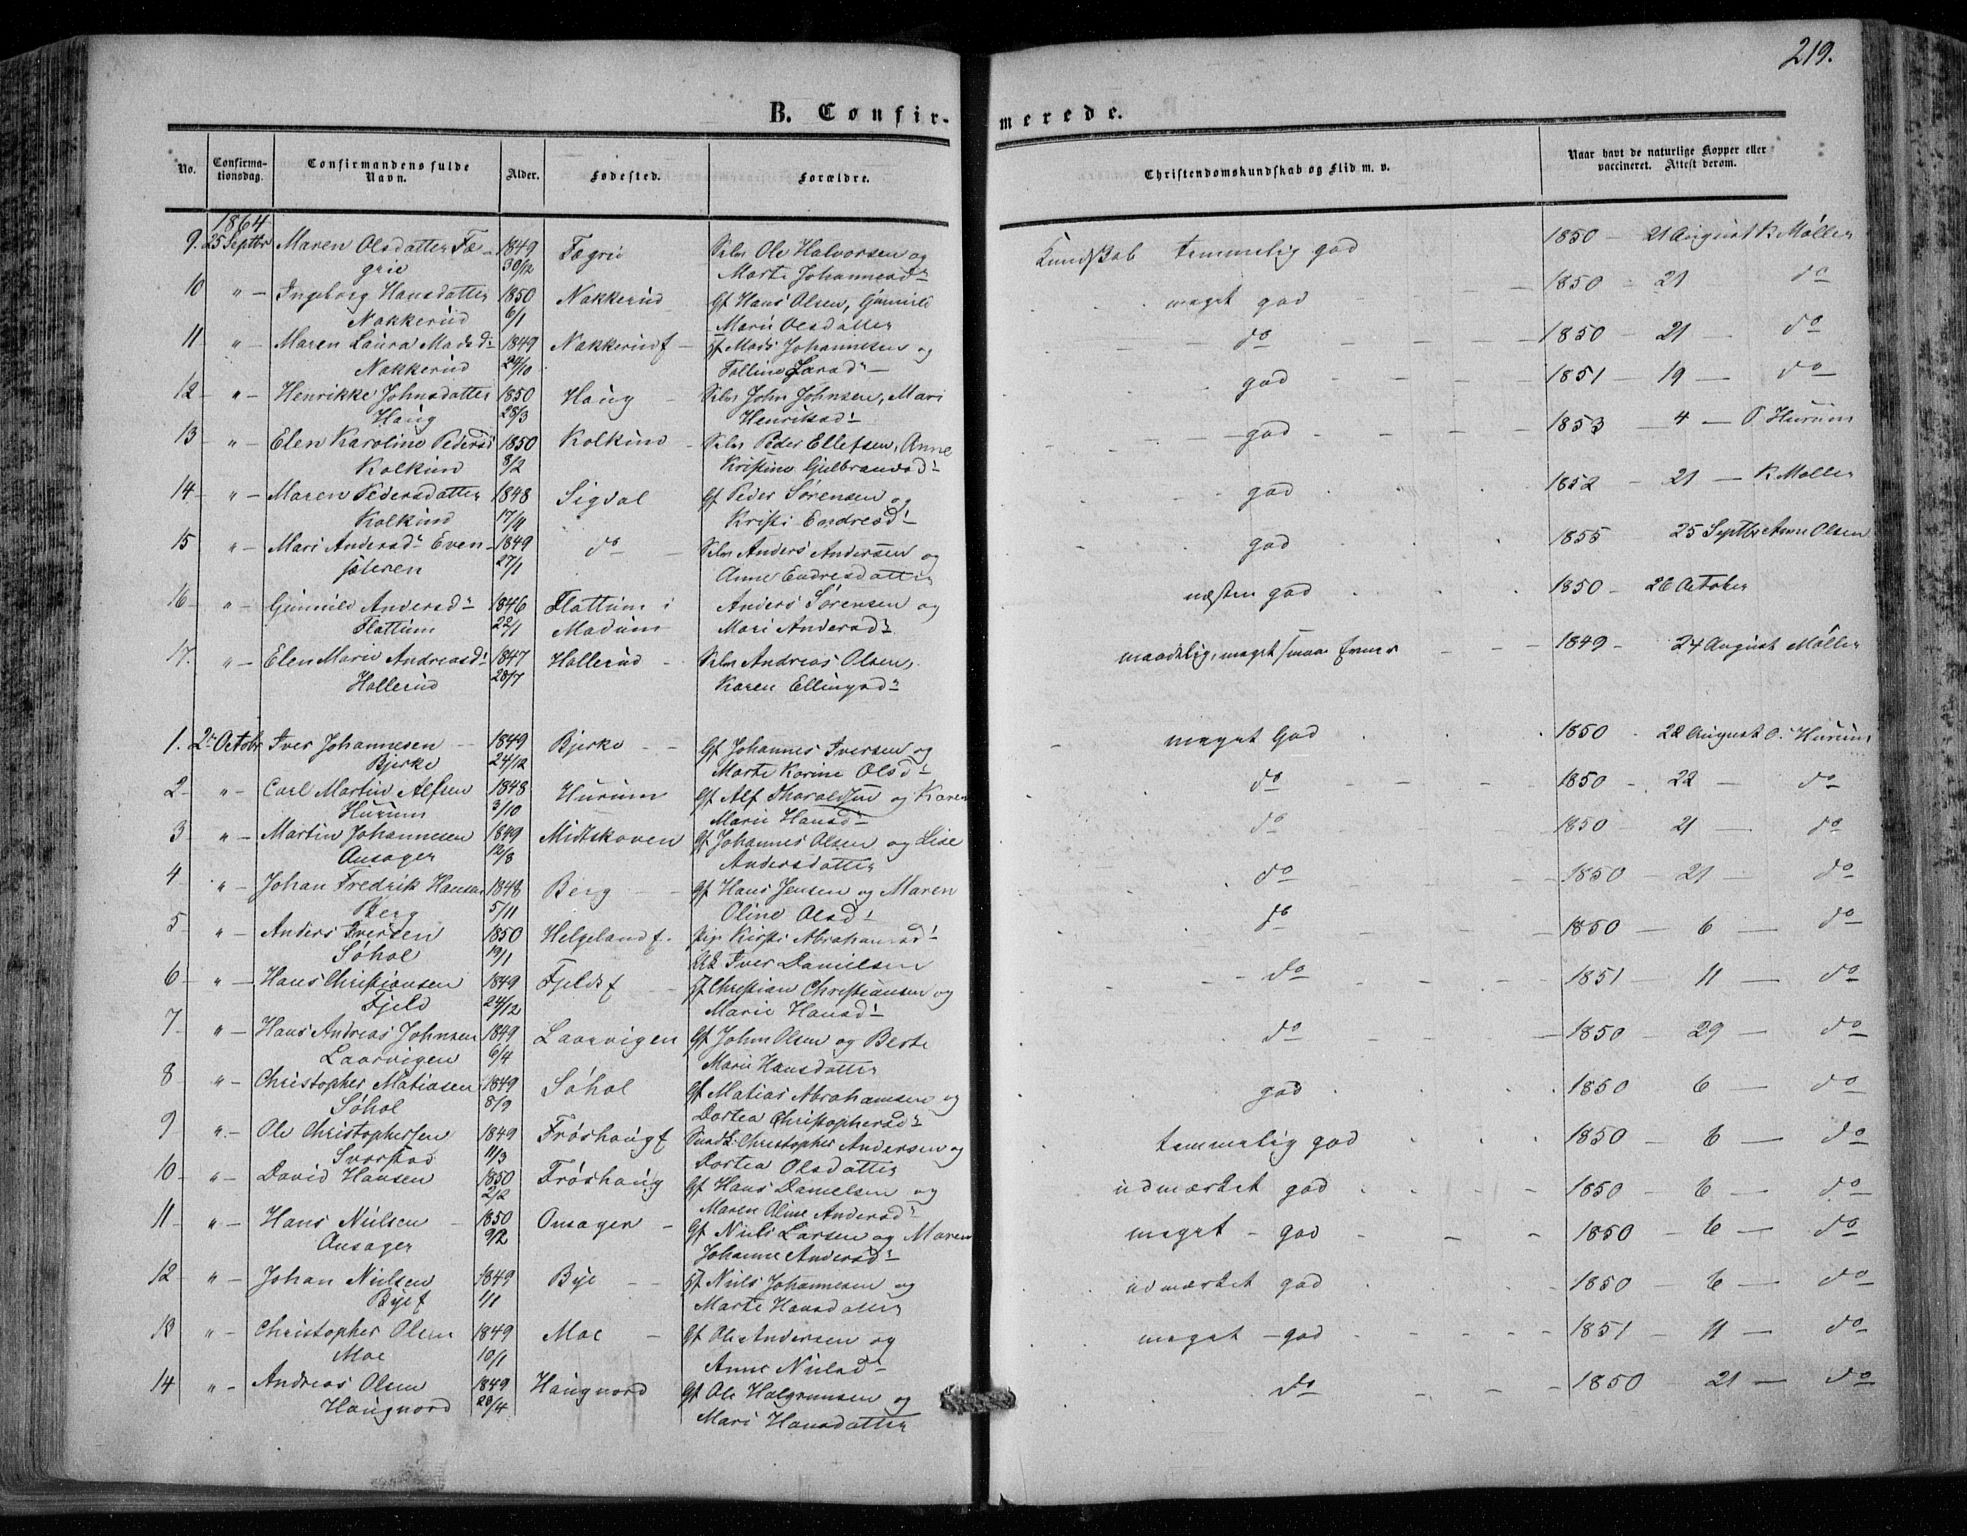 219.
B. Confirmerede.
No. Confirmationsdag. Confirmandens fulde Navn. Alder. Fødested. Forældre. Christendomskundskab og Flid m. v. Naar havt de naturlige Kopper eller vaccineret. Attest derom.
1864
9. 25 Septbr Maren Olsdatter Fæ- 1849 Fægrie Selv Ole Halvorsen og Kundskab temmelig god 1850 - 21 August K. Møller
grie 30/12 Marte Johannesd
10 " - Ingeborg Hansdatter 1850 Nakkerud Gf Hans Olsen, Gunnild meget god 1850 - 21 do
Nakkerud 6/1 Marie Olsdatter
11 " Maren Laura Madsd: 1849 Nakkerudf Jf Mads Johannesen og do 1850 - 21 - do
Nakkerud 24/10
12 " - Henrikke Johnsdatter 1850 Haug Selv John Johnsen, Mari god 1851 - 19 - do
Haug 28/3 Henriksd:
13 " - Elen Karoline Pedersd 1850 Kolkind Selv Peder Ellefsen, Anne god 1853 - 4 - O. Hurum
Kolkind 8/2 Kristine Gulbransd:
14 " - Maren Pedersdatter 1848 Sigdal Gf Peder Sørensen og god 1852 - 21 - K. Møller
Kolkind 17/11 Kristi Endresd:
15 " - Mari Andersd: Even- 1849 do - Selv Anders Andersen og god 1855 25 Septbr Olsen
sæteren 27/1 Anne Endresdatter
16 " - Gunnild Andersd: 1846 Flattum i Anders Sørensen og næsten god 1850 - 26 October
Flattum 22/1 Modum Mari Andersd:
17. " - Elen Marie Andreasd: 1847 Hollerud Selv Andreas Olsen, maadelig, meget smaa Evner 1849 - 24 August Møller
Hollerud 28/7 Karen Ellingsd:
1. 2den Octobr Iver Johannesen 1849 Bjerke Gf Johannes Iversen og meget God 1850 - 22 August O. Hurum
Bjerke 24/12 Marte Karine Olsd:
2 " - Carl Martin Alfsen 1848 Hurum Gf Alf Thoraldsen og Karen do 1850 - 22 do
Hurum 3/10 Marie Hansd:
3 " - Martin Johannesen 1849 Midtskoven Gf Johannes Olsen og Lise do 1850 - 21 - do
Onsager 12/8 Andersdatter
4 " - Johan Fredrik Hansen 1848 Berg Gf Hans Jensen og Maren do 1850 - 21 - do
Berg 5/11 Oline Olsd:
5 " Anders Iversen 1850 Helgelandf. Pige Kirsti Abrahamsd: do 1850 - 6 - do
Søhol 19/1 Iver Danielsen
6 " - Hans Christiansen 1849 Fjeldf Jf Christian Christiansen og do 1851 - 11 - do
Fjeld 24/12 Marie Hansd:
7 " - Hans Andreas Johnsen 1849 Laarvigen Gf John Olsen og Berte do 1850 - 29 - do
Laarvigen 6/4 Marie Hansdatter
8 " - Christopher Matiasen 1849 Søhol Gf Matias Abrahamsen og god 1850 - 6 - do
Søhol 8/9 Dortea Christophersd:
9 " - Ole Christophersen 1849 Frøshougf Christopher Andersen og temmelig god 1850 - 6 - do
Svarstad 11/3 Dortea Olsdatter
10 " - David Hansen 1850 Frøshaug Gf Hans Danielsen og udmærket god 1850 - 6 - do
2/2 Maren Oline Andersd:
11 " - Hans Nielsen 1850 Onsager - Gf Niels Larsen og Maren meget - god 1850 - 6 - do
Onsager 9/2 Johanne Andersd:
12 " - Johan Nielsen 1849 Bye Jf Niels Johannesen og udmærket god 1850 - 6 - do
Byef 1/1 Marte Hansdatter
13 " - Christopher Olsen 1849 Moe - Gf Ole Andersen og meget - god 1851 - 11 - do
Moe 10/1 Anne Nielsd:
14 " - Andreas Olsen 1849 Haugnord Gf Ole Halgrimsen og do 1850 - 21 - do
Haugnord 23/4 Mari Hansdatter